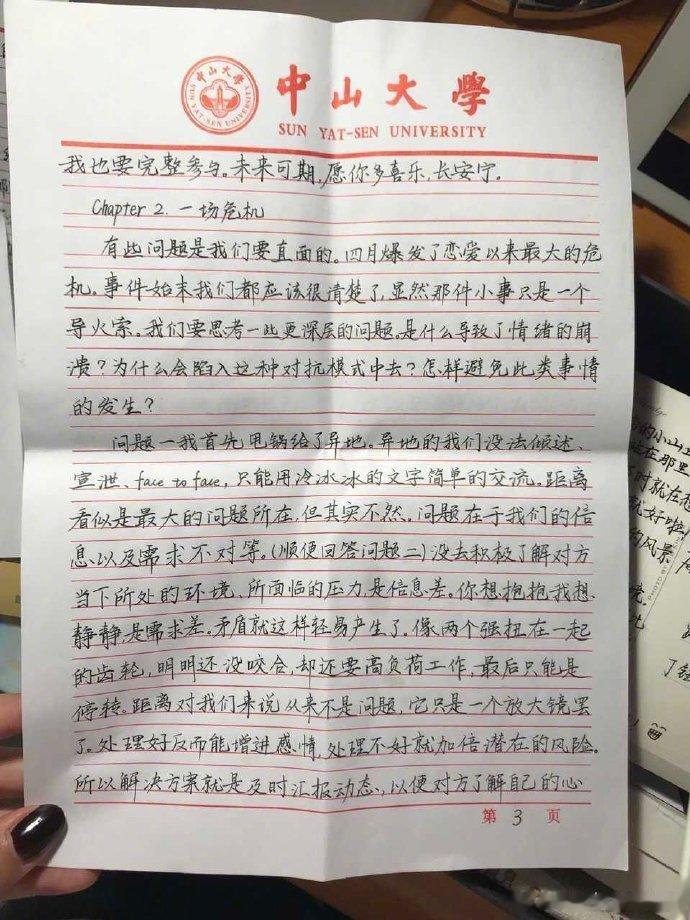 中山大學
SUN YAT-SEN UNIVERSITY
中山大學
SUN YAT-SEN UNIVERSITY
我也要完整参与。未来可期,愿你多喜乐,长安宁。
Chapter 2. 一场危机
有些问题是我们要直面的。四月爆发了恋爱以来最大的危
机。事件始末我们都应该很清楚了,显然那件小事只是一个
导火索。我们要思考一些更深层的问题。是什么导致了情绪的崩
溃?为什么会陷入这种对抗模式中去?怎样避免此类事情
的发生?
问题一我首先甩锅给了异地。异地的我们没法倾述、
宣泄、face to face,只能用冷冰冰的文字简单的交流。距离
看似是最大的问题所在,但其实不然。问题在于我们的信
息以及需求不对等。(顺便回答问题二)没去积极了解对方
当下所处的环境、所面临的压力是信息差。你想抱抱我想
静静,是需求差。矛盾就这样轻易产生了。像两个强扭在一起
的齿轮,明明还没咬合,却还要高负荷工作,最后只能是
停转。距离对我们来说从来不是问题,它只是一个放大镜罢
了。处理好反而能增进感情,处理不好就加倍潜在的风险。
所以解决方案就是及时汇报动态、以便对方了解自己的心
第 3 页
的小山
在那里
时就在
就好啦
的风景